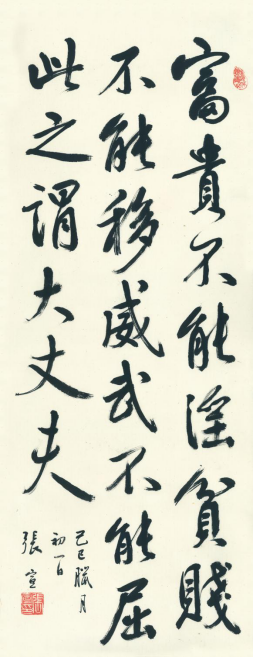 富貴不能淫貧賤
不能移威武不能屈
此之謂大丈夫
己巳臘月
初一日
張宣